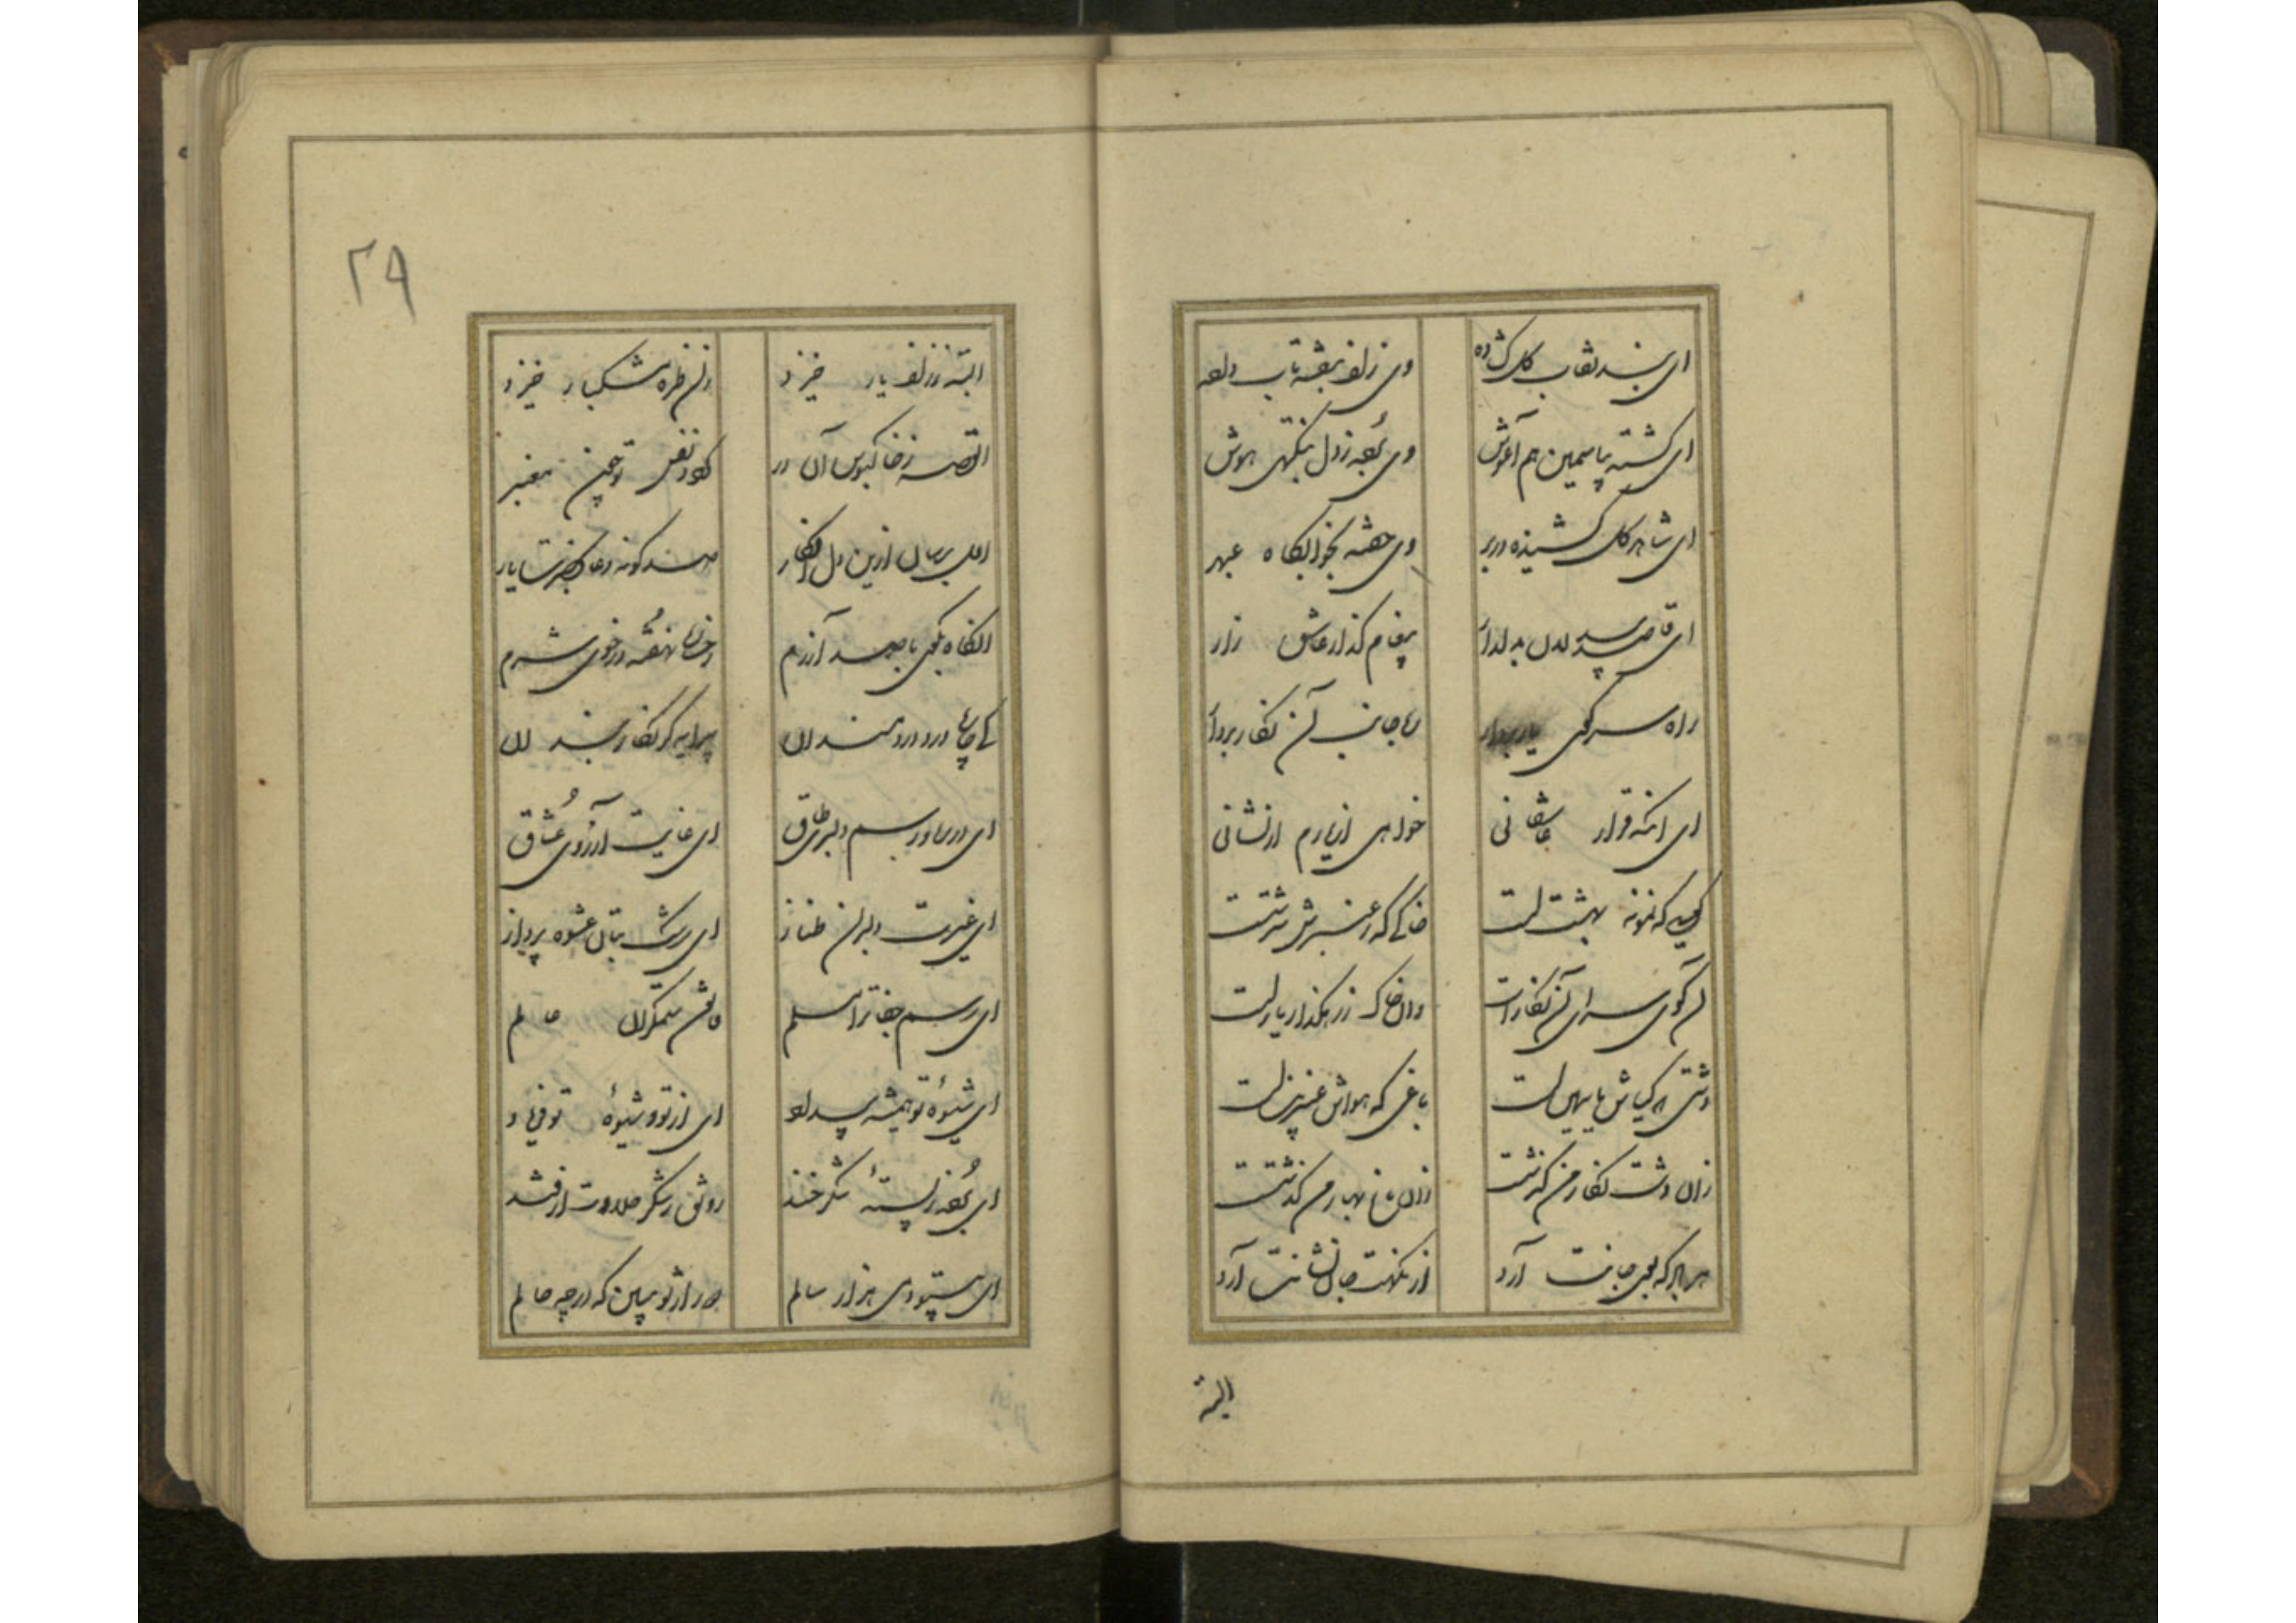 ای بند نقاب گل گشاده وی زلف بنفشه تاب داده
ای گشته بیاسمین هم آغوش وی برده ز دل بنکهتی هوش
ای شاهد گل کشیده در بر وی خفته بخوابگاه عبهر
ای قاصد بیدلان بدلدار پیغام گذار عاشق زار
راه سر کوی یار بردار جانب آن نگار بردار
ای آنکه قرار عاشقانی خواهی از یارم ار نشانی
کویی که نمونه بهشت است خاکی که ز عنبرش سرشت است
آن کوی سرای آن نگار است وان خاک ز رهگذار یار است
دشتی که گیاش یاسمین است باغی که هواش عنبرین است
زان دشت نگار من گذشتست زان باغ بهار من گذشتست
هر اثر که بوی جانت آرد از نکهت جان نشانت آرد
البته
۲۹
البته ز زلف یار خیزد زان طره مشکبار خیزد
القصه ز خاکبوس آن در گردد نفس تو چون معنبر
اول برسان ازین دل افگار صد گونه دعا بحضرت یار
آنگاه بگوی با صد آزرم رخساره نهفته در خوی شرم
کای چاره درد دردمندان پیرایه گر نگار بندان
ای در همه رسم دلبری طاق ای غایت آرزوی عشاق
ای غیرت دلبران طناز ای رشک بتان عشوه پرداز
ای رسم جفا ترا مسلم قانون ستمگران عالم
ای شیوه تو همیشه بیداد ای از تو و شیوه تو فریاد
ای برده ز پسته شکرخند رونق ز شکر حلاوت از قند
ای بیتو دمی هزار سالم دور از تو ببین که در چه حالم